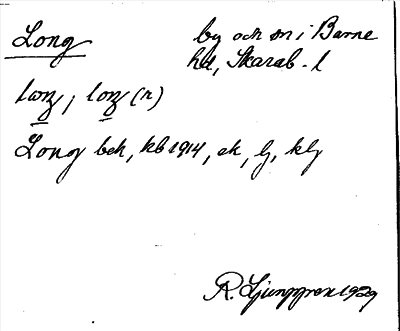 Long by och sn i Barne
hd, Skarab. l
long, long (n)
Long beb, kb 1914, ek, lj, klj
R. Ljunggren 1929